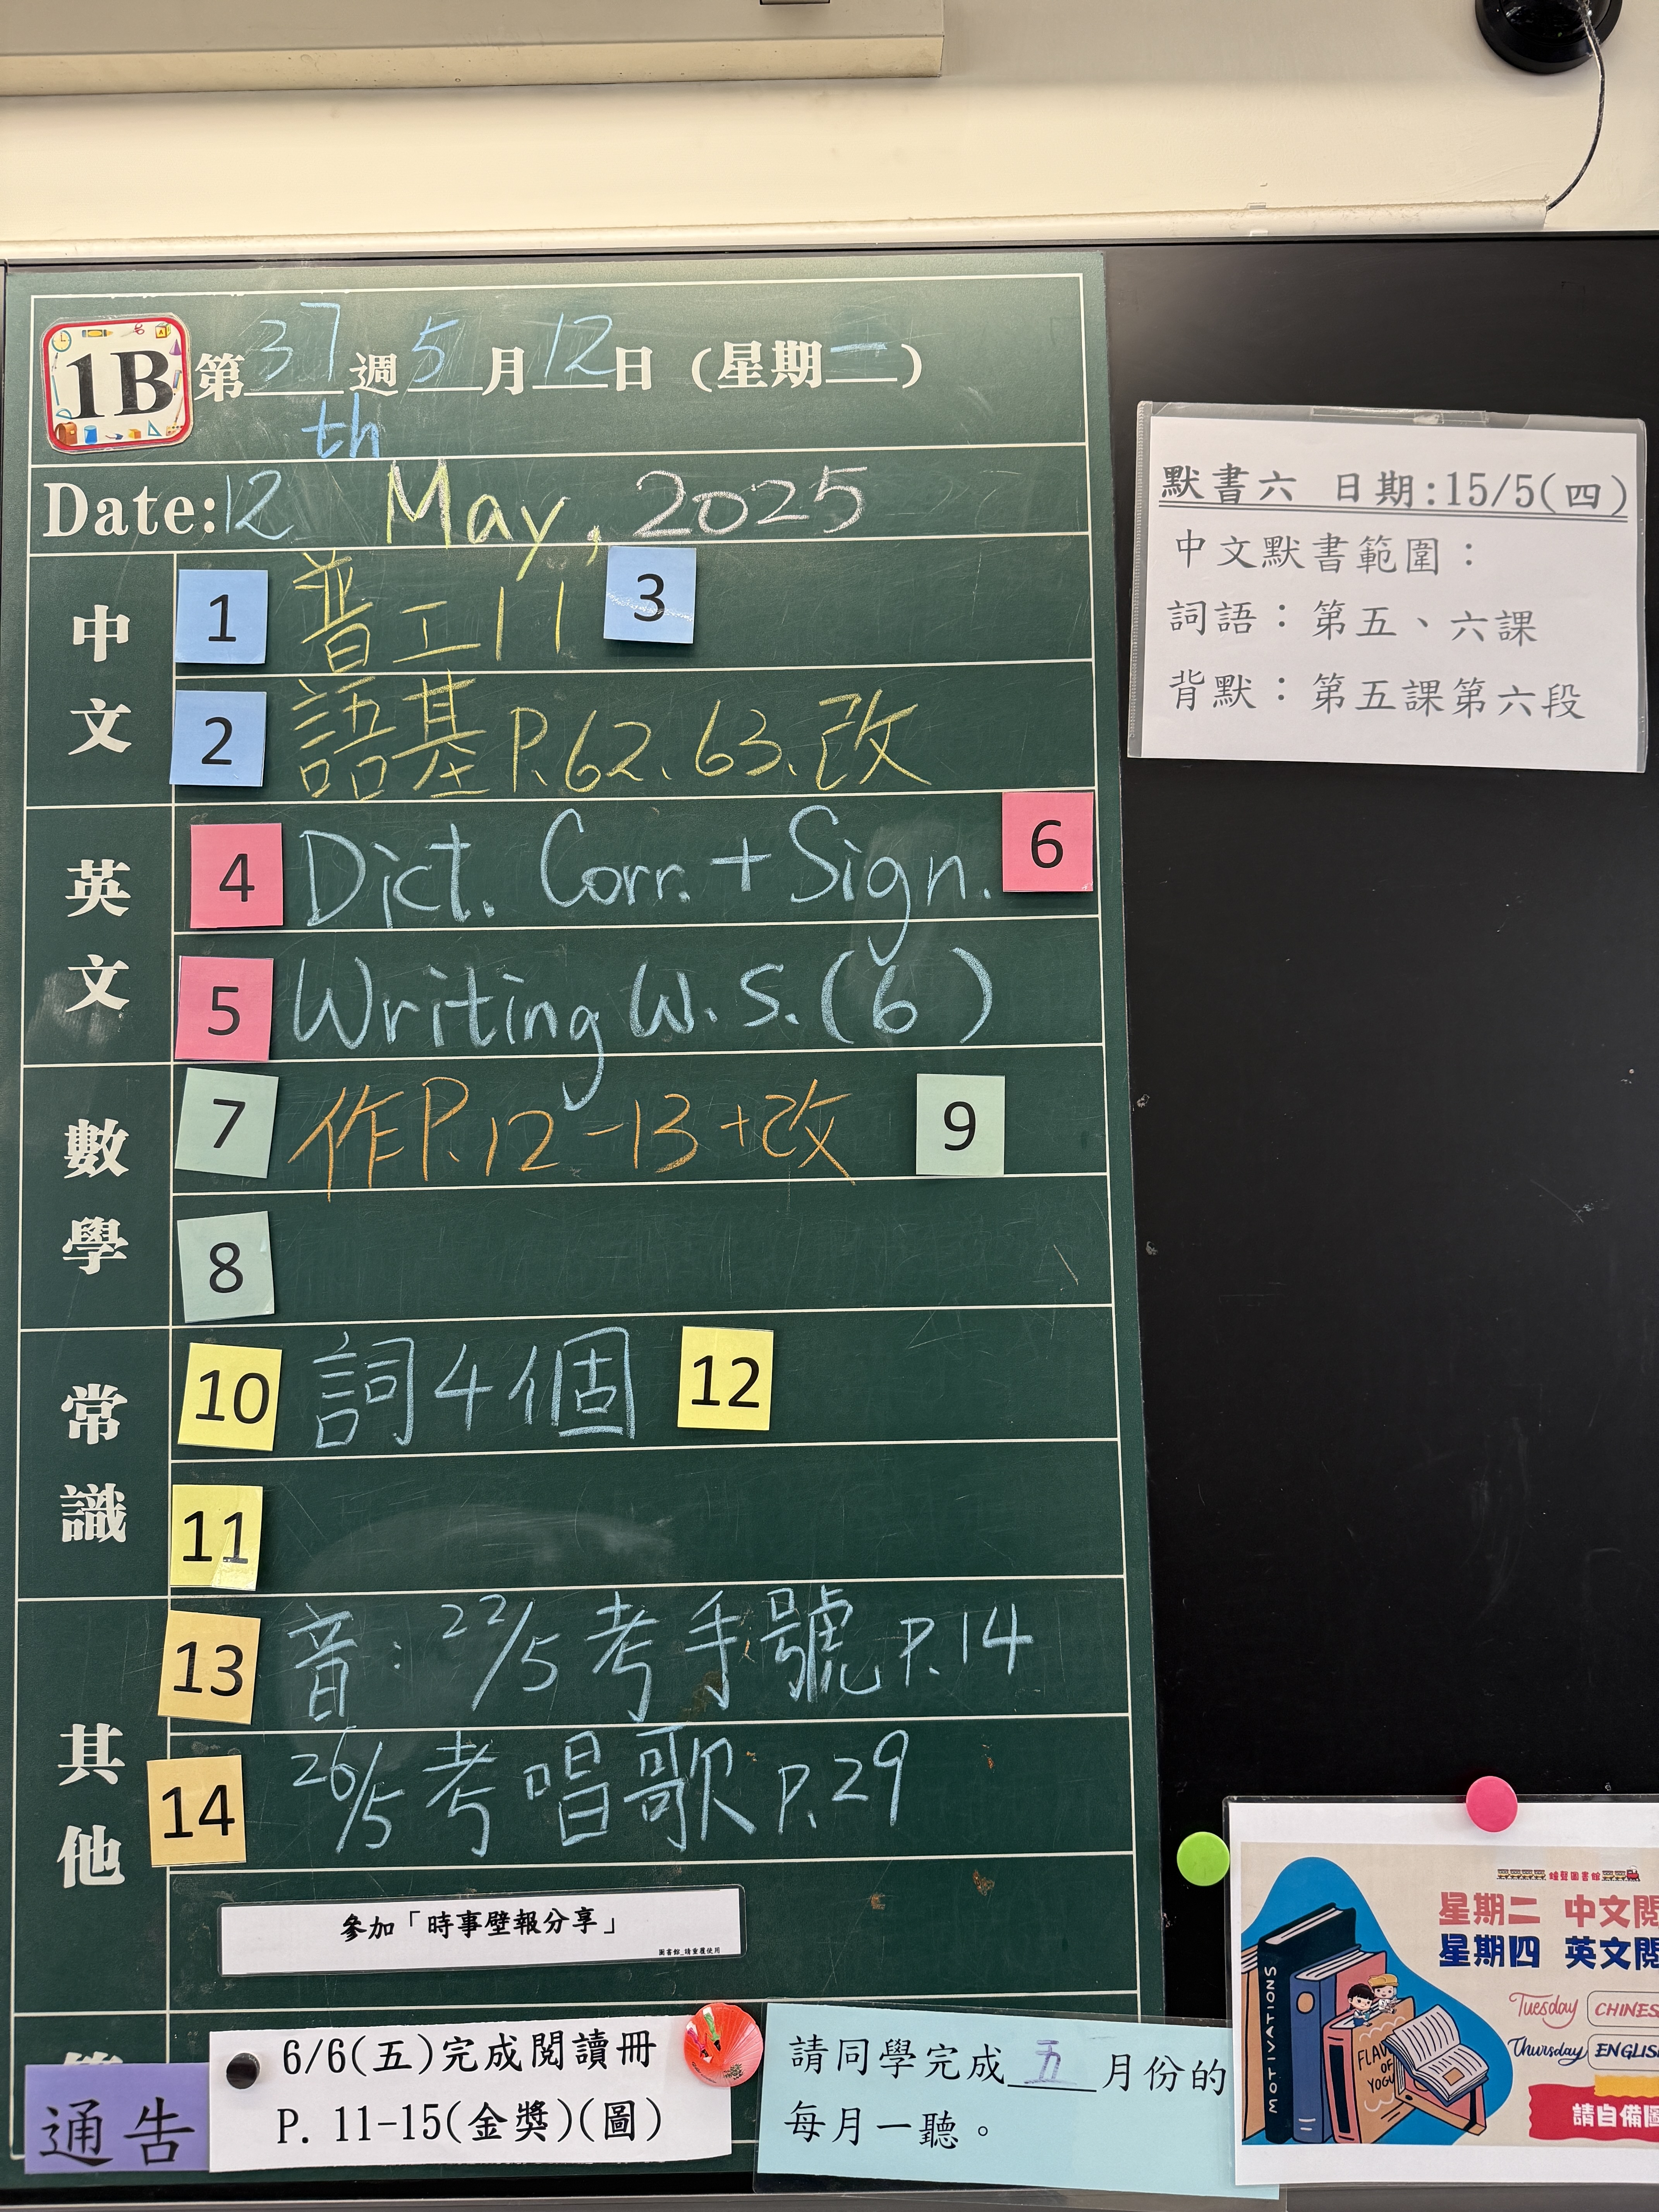 1B 第37週5月12日（星期一）
th
Date:12 May, 2025
中文
1 普工11 3
2 語基P.62、63、改
英文
4 Dict. Corr. + Sign. 6
5 Writing W.S.(6)
數學
7 作P.12-13+改 9
8
常識
10 詞4個 12
11
其他
13 音：22/5考手號P.14
14 26/5考唱歌P.29
參加「時事壁報分享」
圖書館_請重覆使用
通告
6/6(五)完成閱讀冊
P. 11-15(金獎)(圖)
請同學完成五月份的
每月一聽。
默書六 日期:15/5(四)
中文默書範圍：
詞語：第五、六課
背默：第五課第六段
星期二 中文閱
星期四 英文閱
Tuesday CHINES
Thursday ENGLIS
請自備圖
MOTIVATIONS
OF